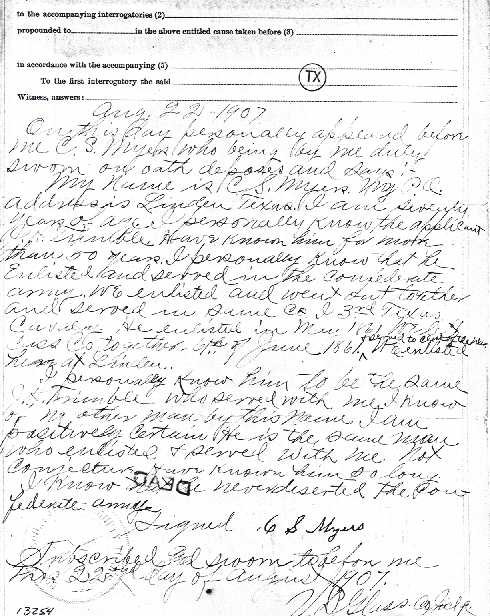 to the accompanying interrogatories (2)
propounded to in the above entitled cause taken before (3)
in accordance with the accompanying (5)
To the first interrogatory the said
TX
Witness, answers:
Aug 22 1907
On this day personally appeared before
me C. S. Myers who being by me duly
sworn on oath deposes and says:-
My Name is C. S. Myers My P.O.
address is Linden Texas. I am seventy
years of age. I personally know the applicant
Trimble Have known him for more
than 50 years. I personally know that he
Enlisted and served in the Confederate
army. We enlisted and went out together
and served in same Co I 3rd Texas
Cavalry He enlisted in 1861
Co together of June 1861 We enlisted
here at Linden.
I personally know him to be the same
Trimble who served with me I know
of no other man by this name I am
positively certain He is the same man
who enlisted & served with me Not
Conjecture have known him so long
I know he never deserted the Con
DEAD
federate army
Signed C S Myers
Subscribed and sworn to before me
this 22nd day of August 1907.
13254